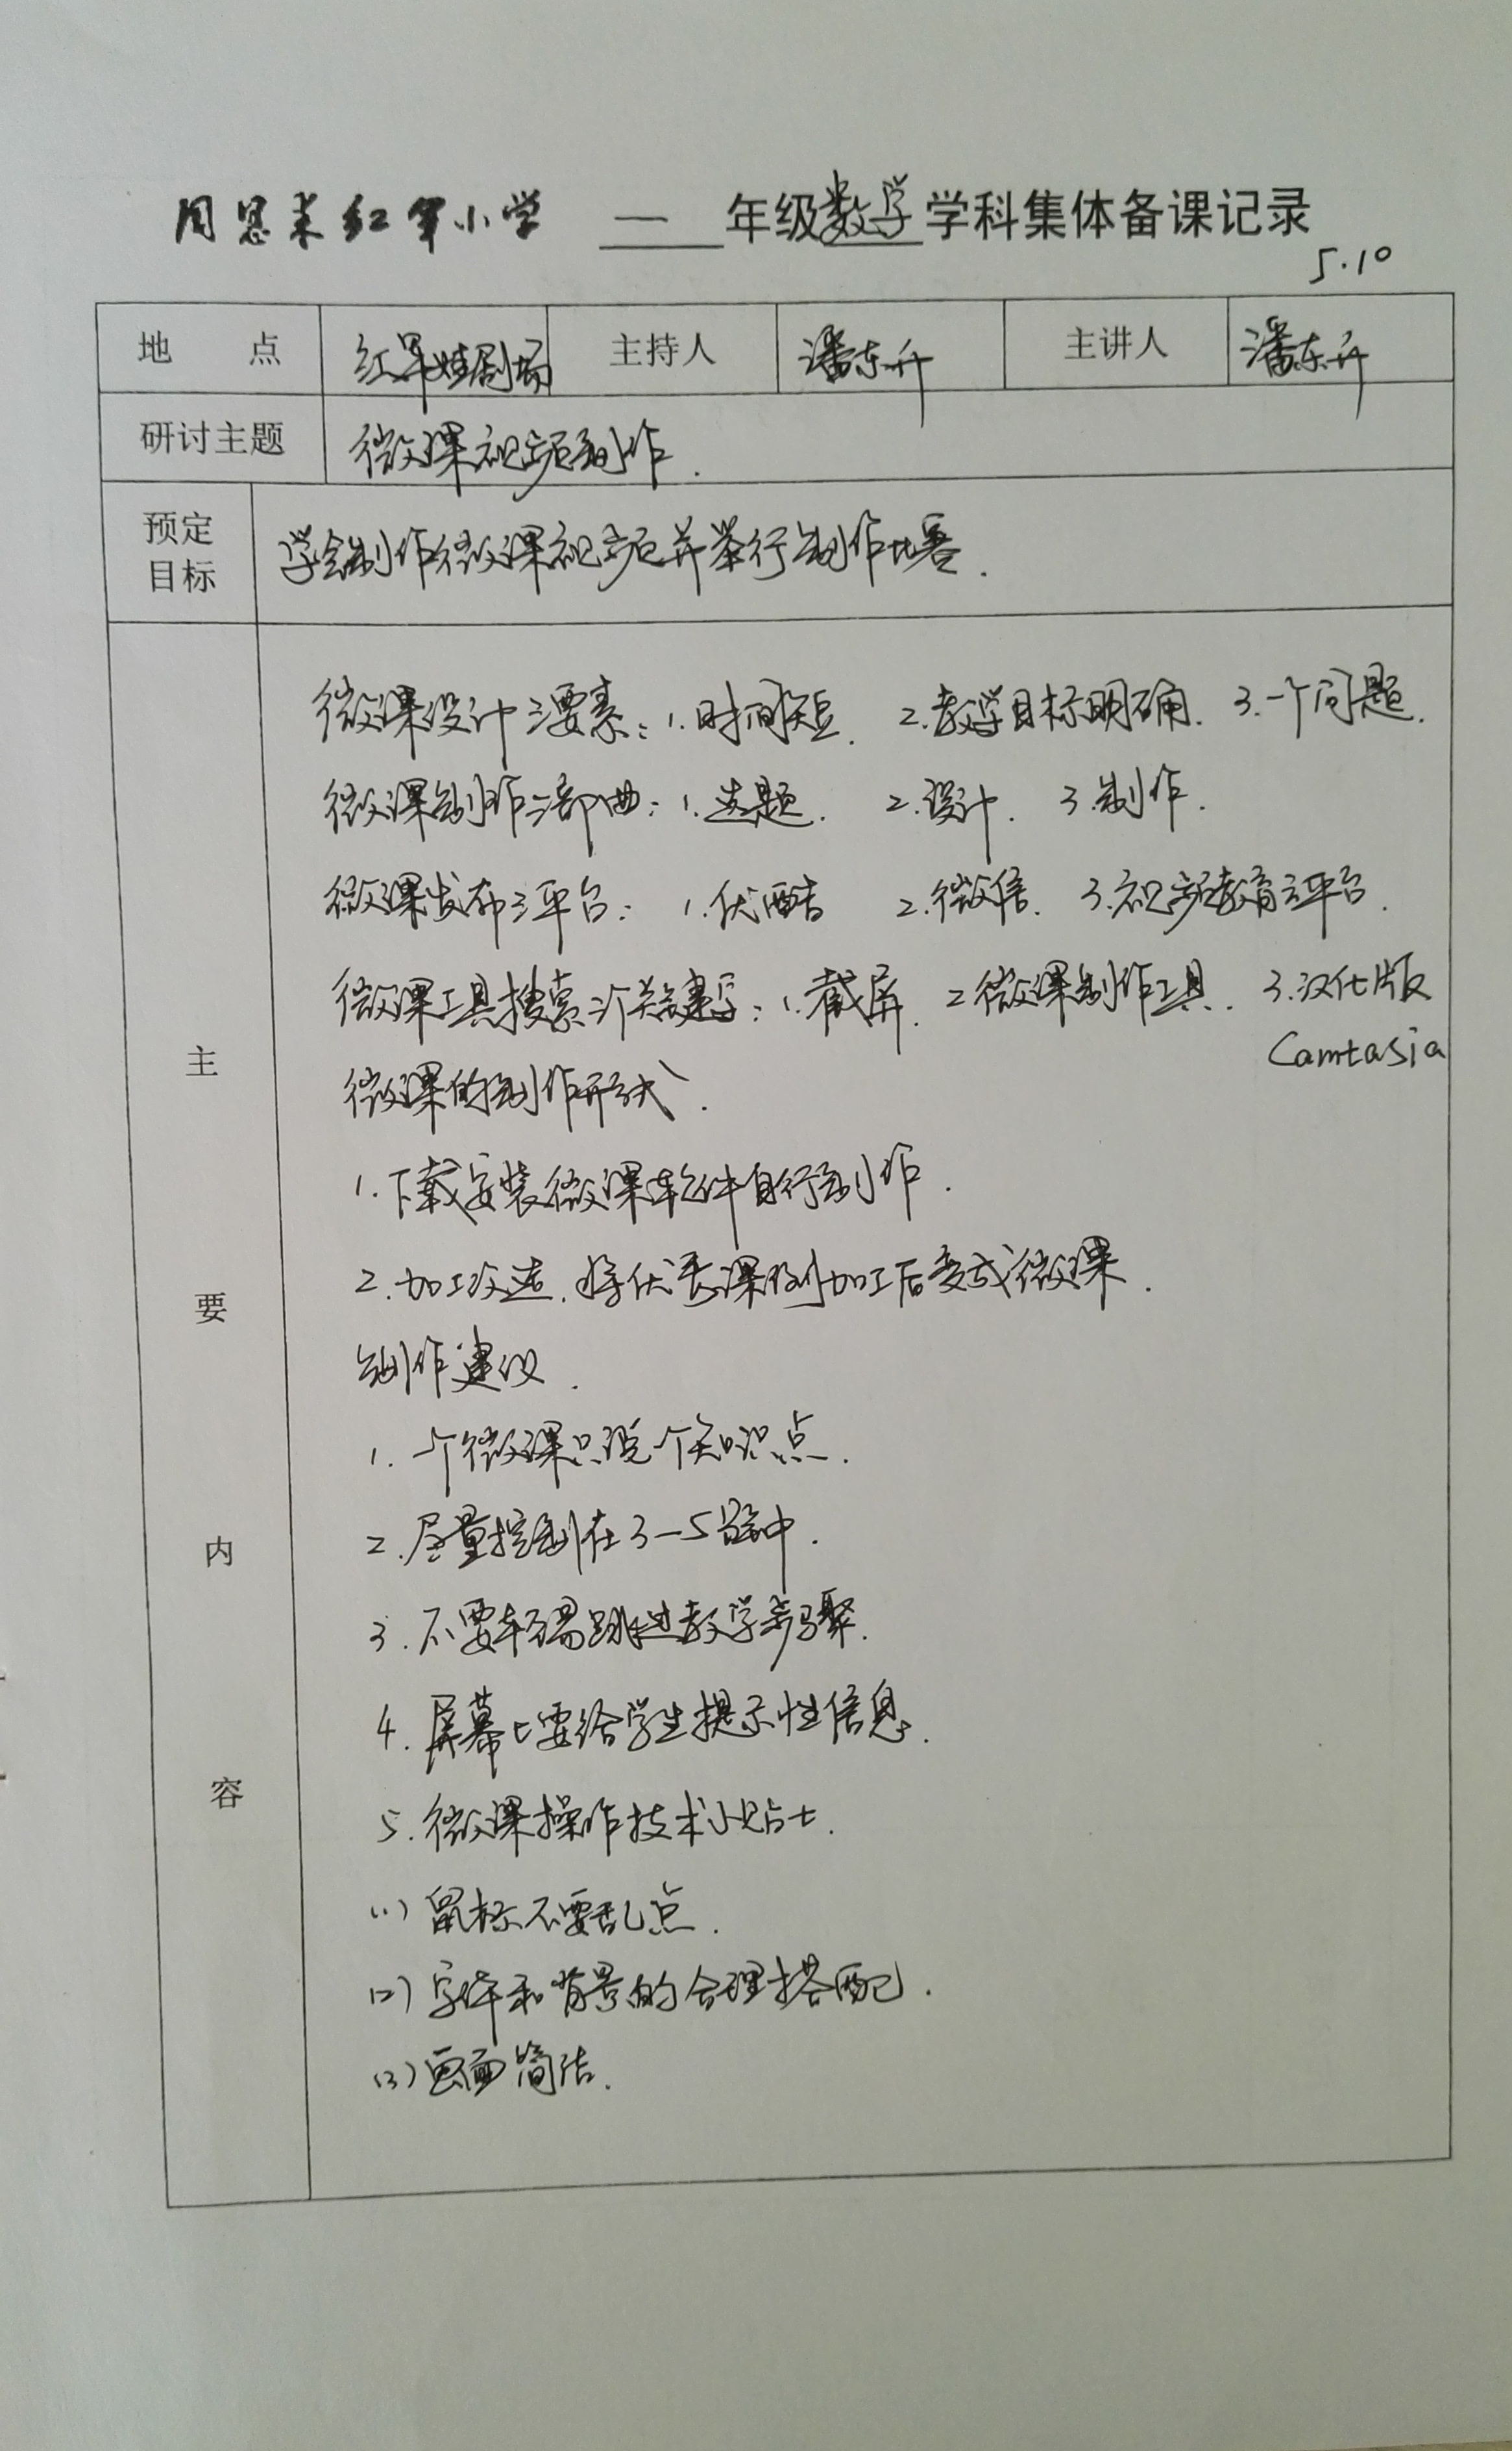 周恩来红军小学 一 年级数学学科集体备课记录
5.10
地 点 红军娃剧场 主持人 潘东升 主讲人 潘东升
研讨主题 微课视频制作.
预定目标 学会制作微课视频并举行制作比赛.
主要内容
微课设计三要素:1.时间短. 2.教学目标明确. 3.一个问题.
微课制作三部曲:1.选题. 2.设计. 3.制作.
微课发布三平台:1.优酷 2.微信. 3.视频教育云平台.
微课工具搜索三个关键字:1.截屏. 2微课制作工具. 3.汉化版
Camtasia
微课的制作形式.
1.下载安装微课软件自行制作.
2.加工改造.将优秀课例加工后变成微课.
制作建议.
1.一个微课只说一个知识点.
2.尽量控制在3-5分钟中.
3.不要轻易跳过教学步骤.
4.屏幕上要给学生提示性信息.
5.微课操作技术小贴士.
(1)鼠标不要乱点.
(2)字体和背景的合理搭配.
(3)画面简洁.